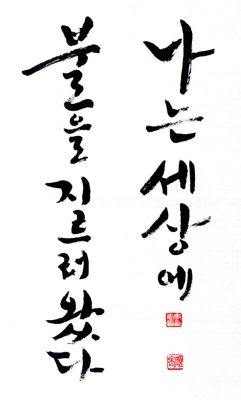 나는 세상에
불을 지르러 왔다